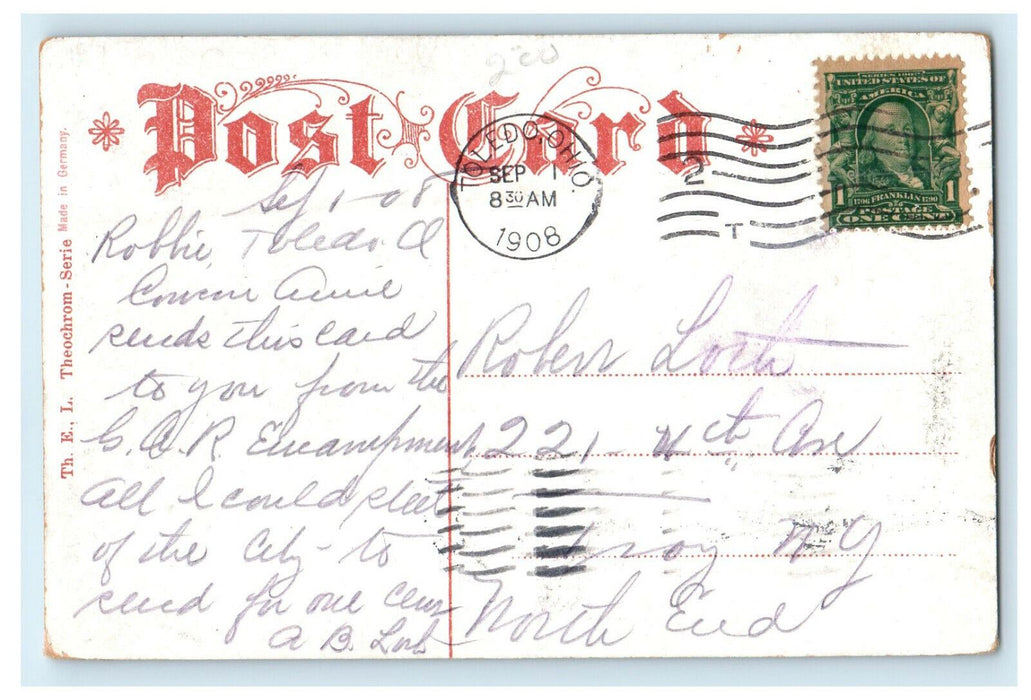 200
Post Card
TOLEDO, OHIO.
SEP 1
8 30 AM
1908
2
T
SERIES 1902
UNITED STATES OF
AMERICA
1 1
1706 FRANKLIN 1790
POSTAGE
ONE CENT
Th. E., L. Theochrom-Serie Made in Germany.
Sep 1-08
Robbie, Toledo, O
Annie
sends this card
to you from the
G.A.R. Encampment
All I could
of the City - to
send for one cent
A. B.
Robert
221 - 4th Ave
Troy N Y
North End